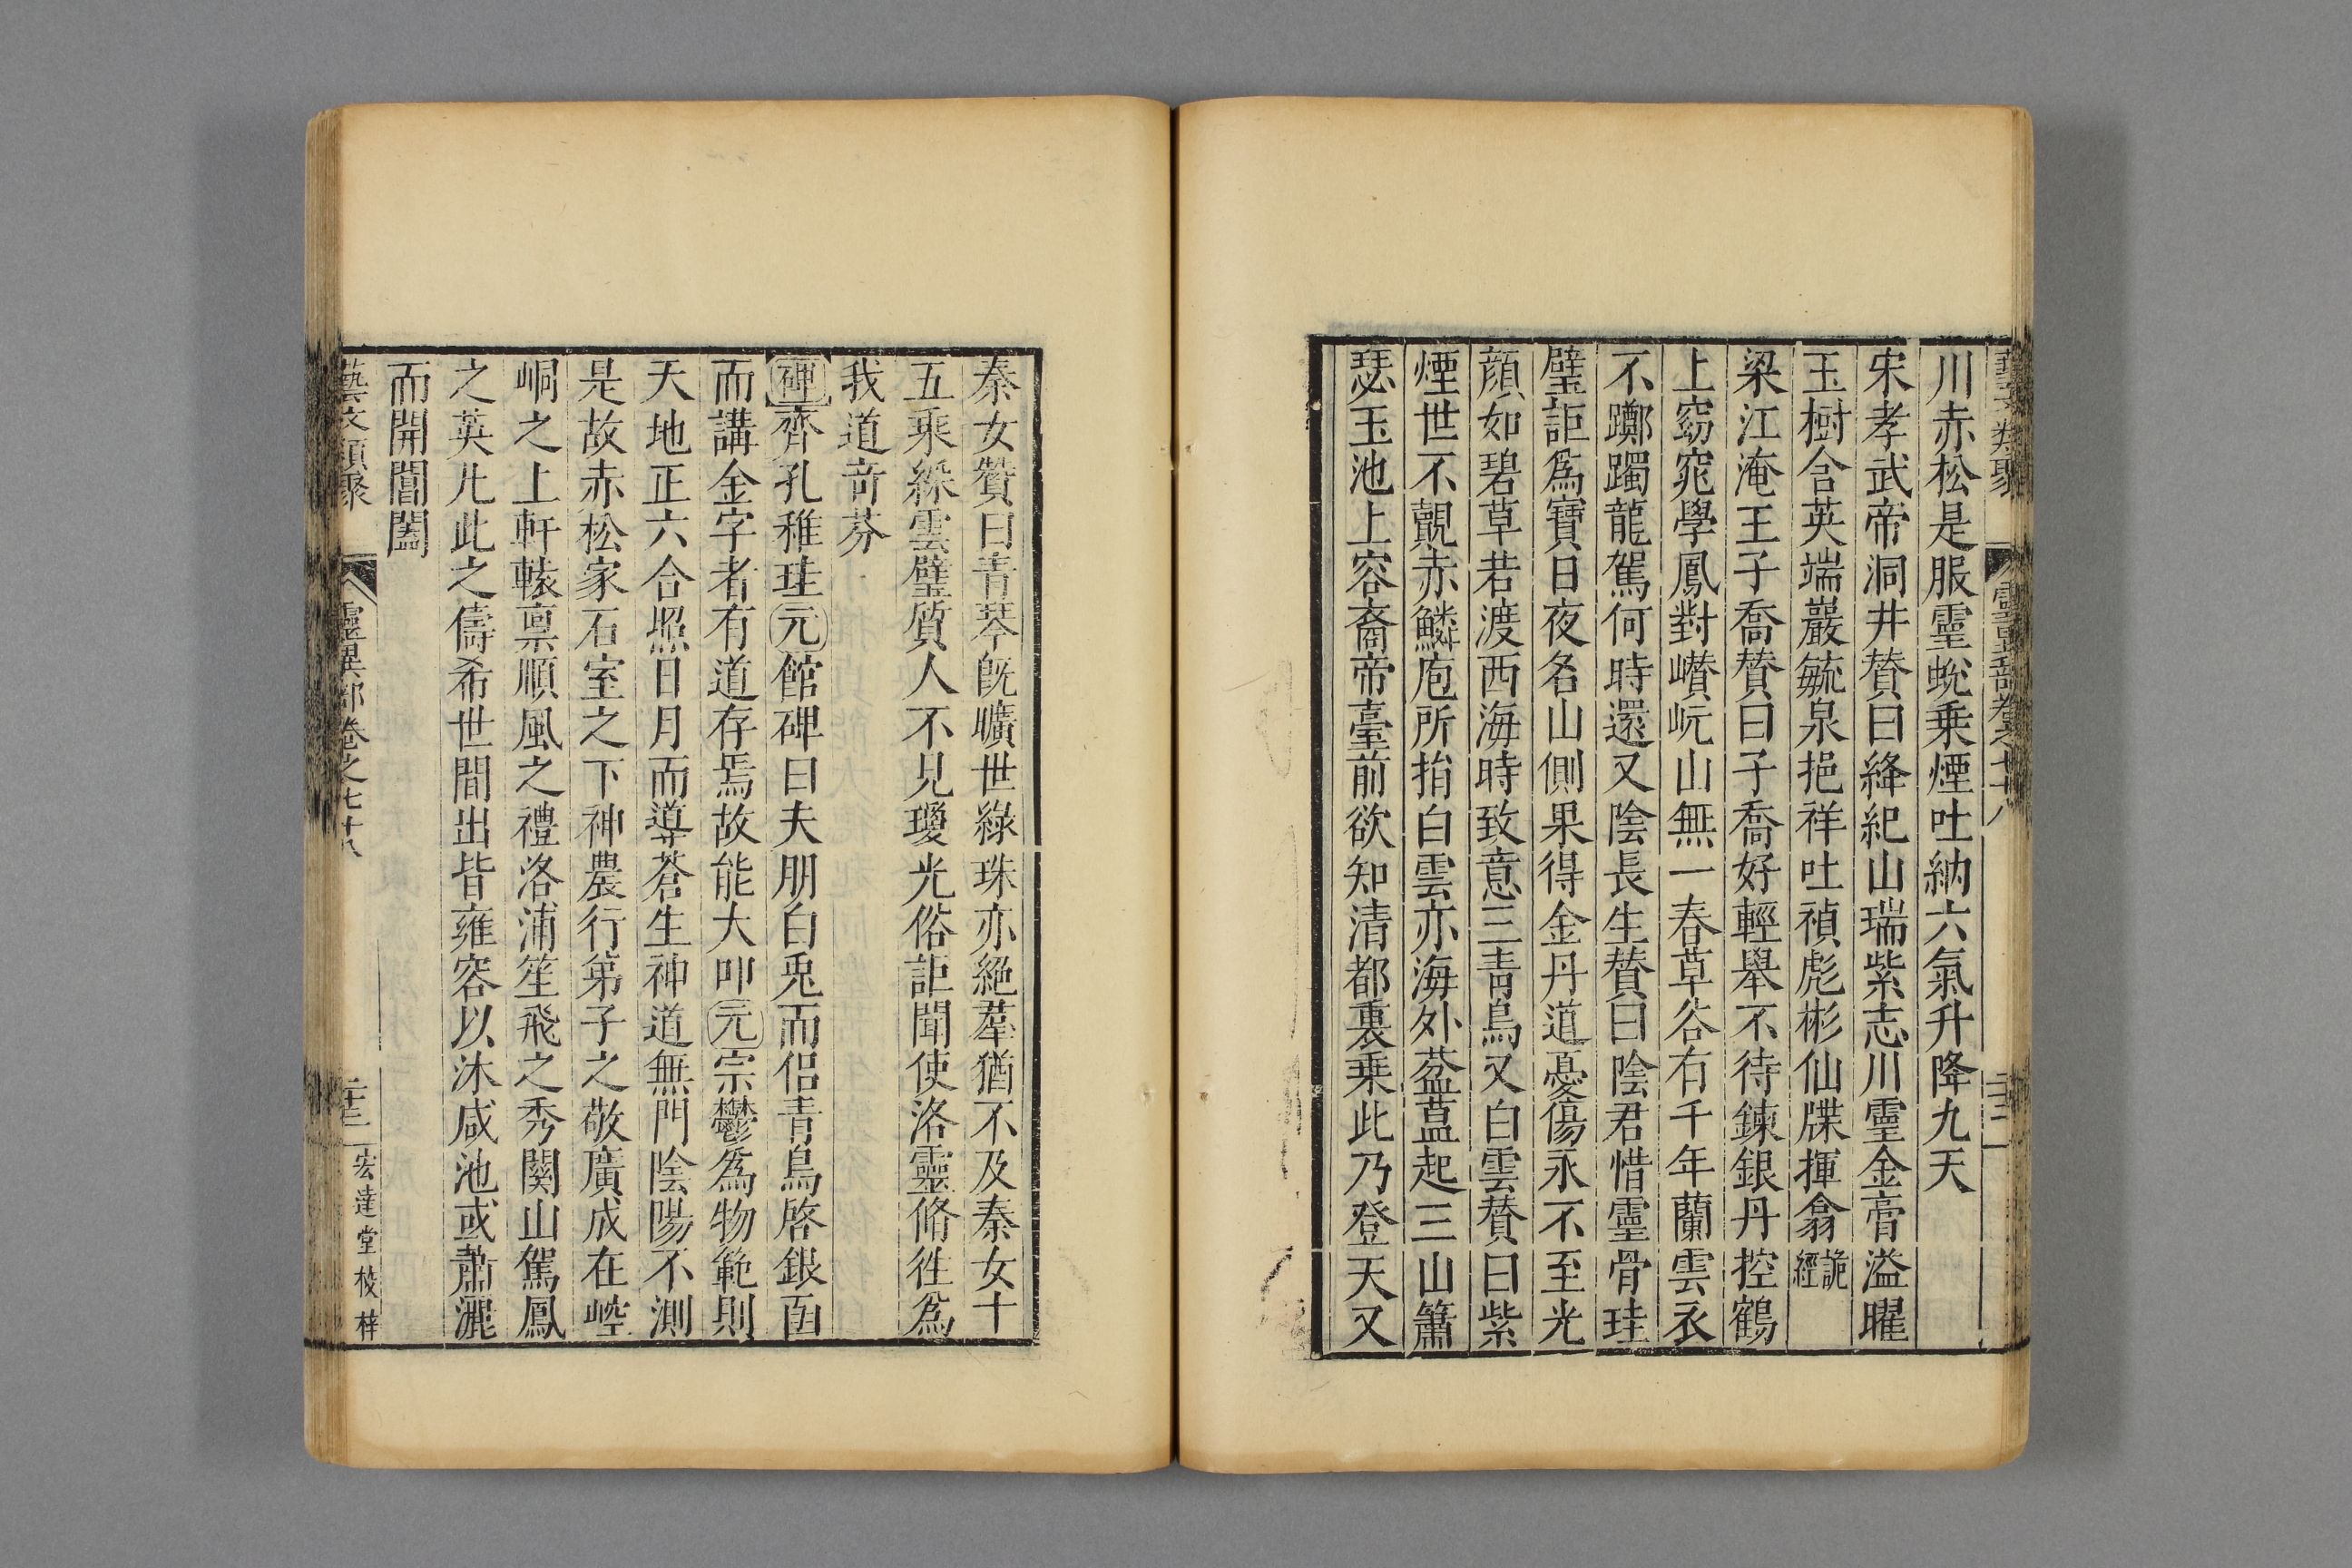 川赤松是服靈蛻乗煙吐納六氣升降九天
宋孝武帝洞井賛曰絳紀山瑞紫志川靈金膏溢曜
玉樹含英端巖毓泉挹祥吐禎彪彬仙牒揮翕詭經
梁江淹王子喬賛曰子喬好輕舉不待鍊銀丹控鶴
上窈窕學鳳對巑岏山無一春草谷有千年蘭雲衣
不躑躅龍駕何時還又陰長生賛曰陰君惜靈骨珪
璧詎爲寶日夜名山側果得金丹道憂傷永不至光
顏如碧草若渡西海時致意三青鳥又白雲賛曰紫
煙世不覿赤鱗庖所捐白雲亦海外蓊藴起三山簫
瑟玉池上容裔帝臺前欲知清都裏乗此乃登天又
秦女贊曰青琴旣曠世綠珠亦絕羣猶不及秦女十
五乘綵雲璧質人不見瓊光俗詎聞使洛靈脩徃爲
我道竒芬
碑齊孔稚珪元館碑曰夫朋白兎而侣青鳥啓銀函
而講金字者有道存焉故能大叩元宗鬱爲物範則
天地正六合照日月而導蒼生神道無門陰陽不測
是故赤松家石室之下神農行第子之敬廣成在崆
峒之上軒轅禀順風之禮洛浦笙飛之秀関山駕鳳
之英凡此之儔希世間出皆雍容以沐咸池或蕭灑
而開閶闔
藝文類聚 靈異部卷之七十八 二十三 宏達堂校梓